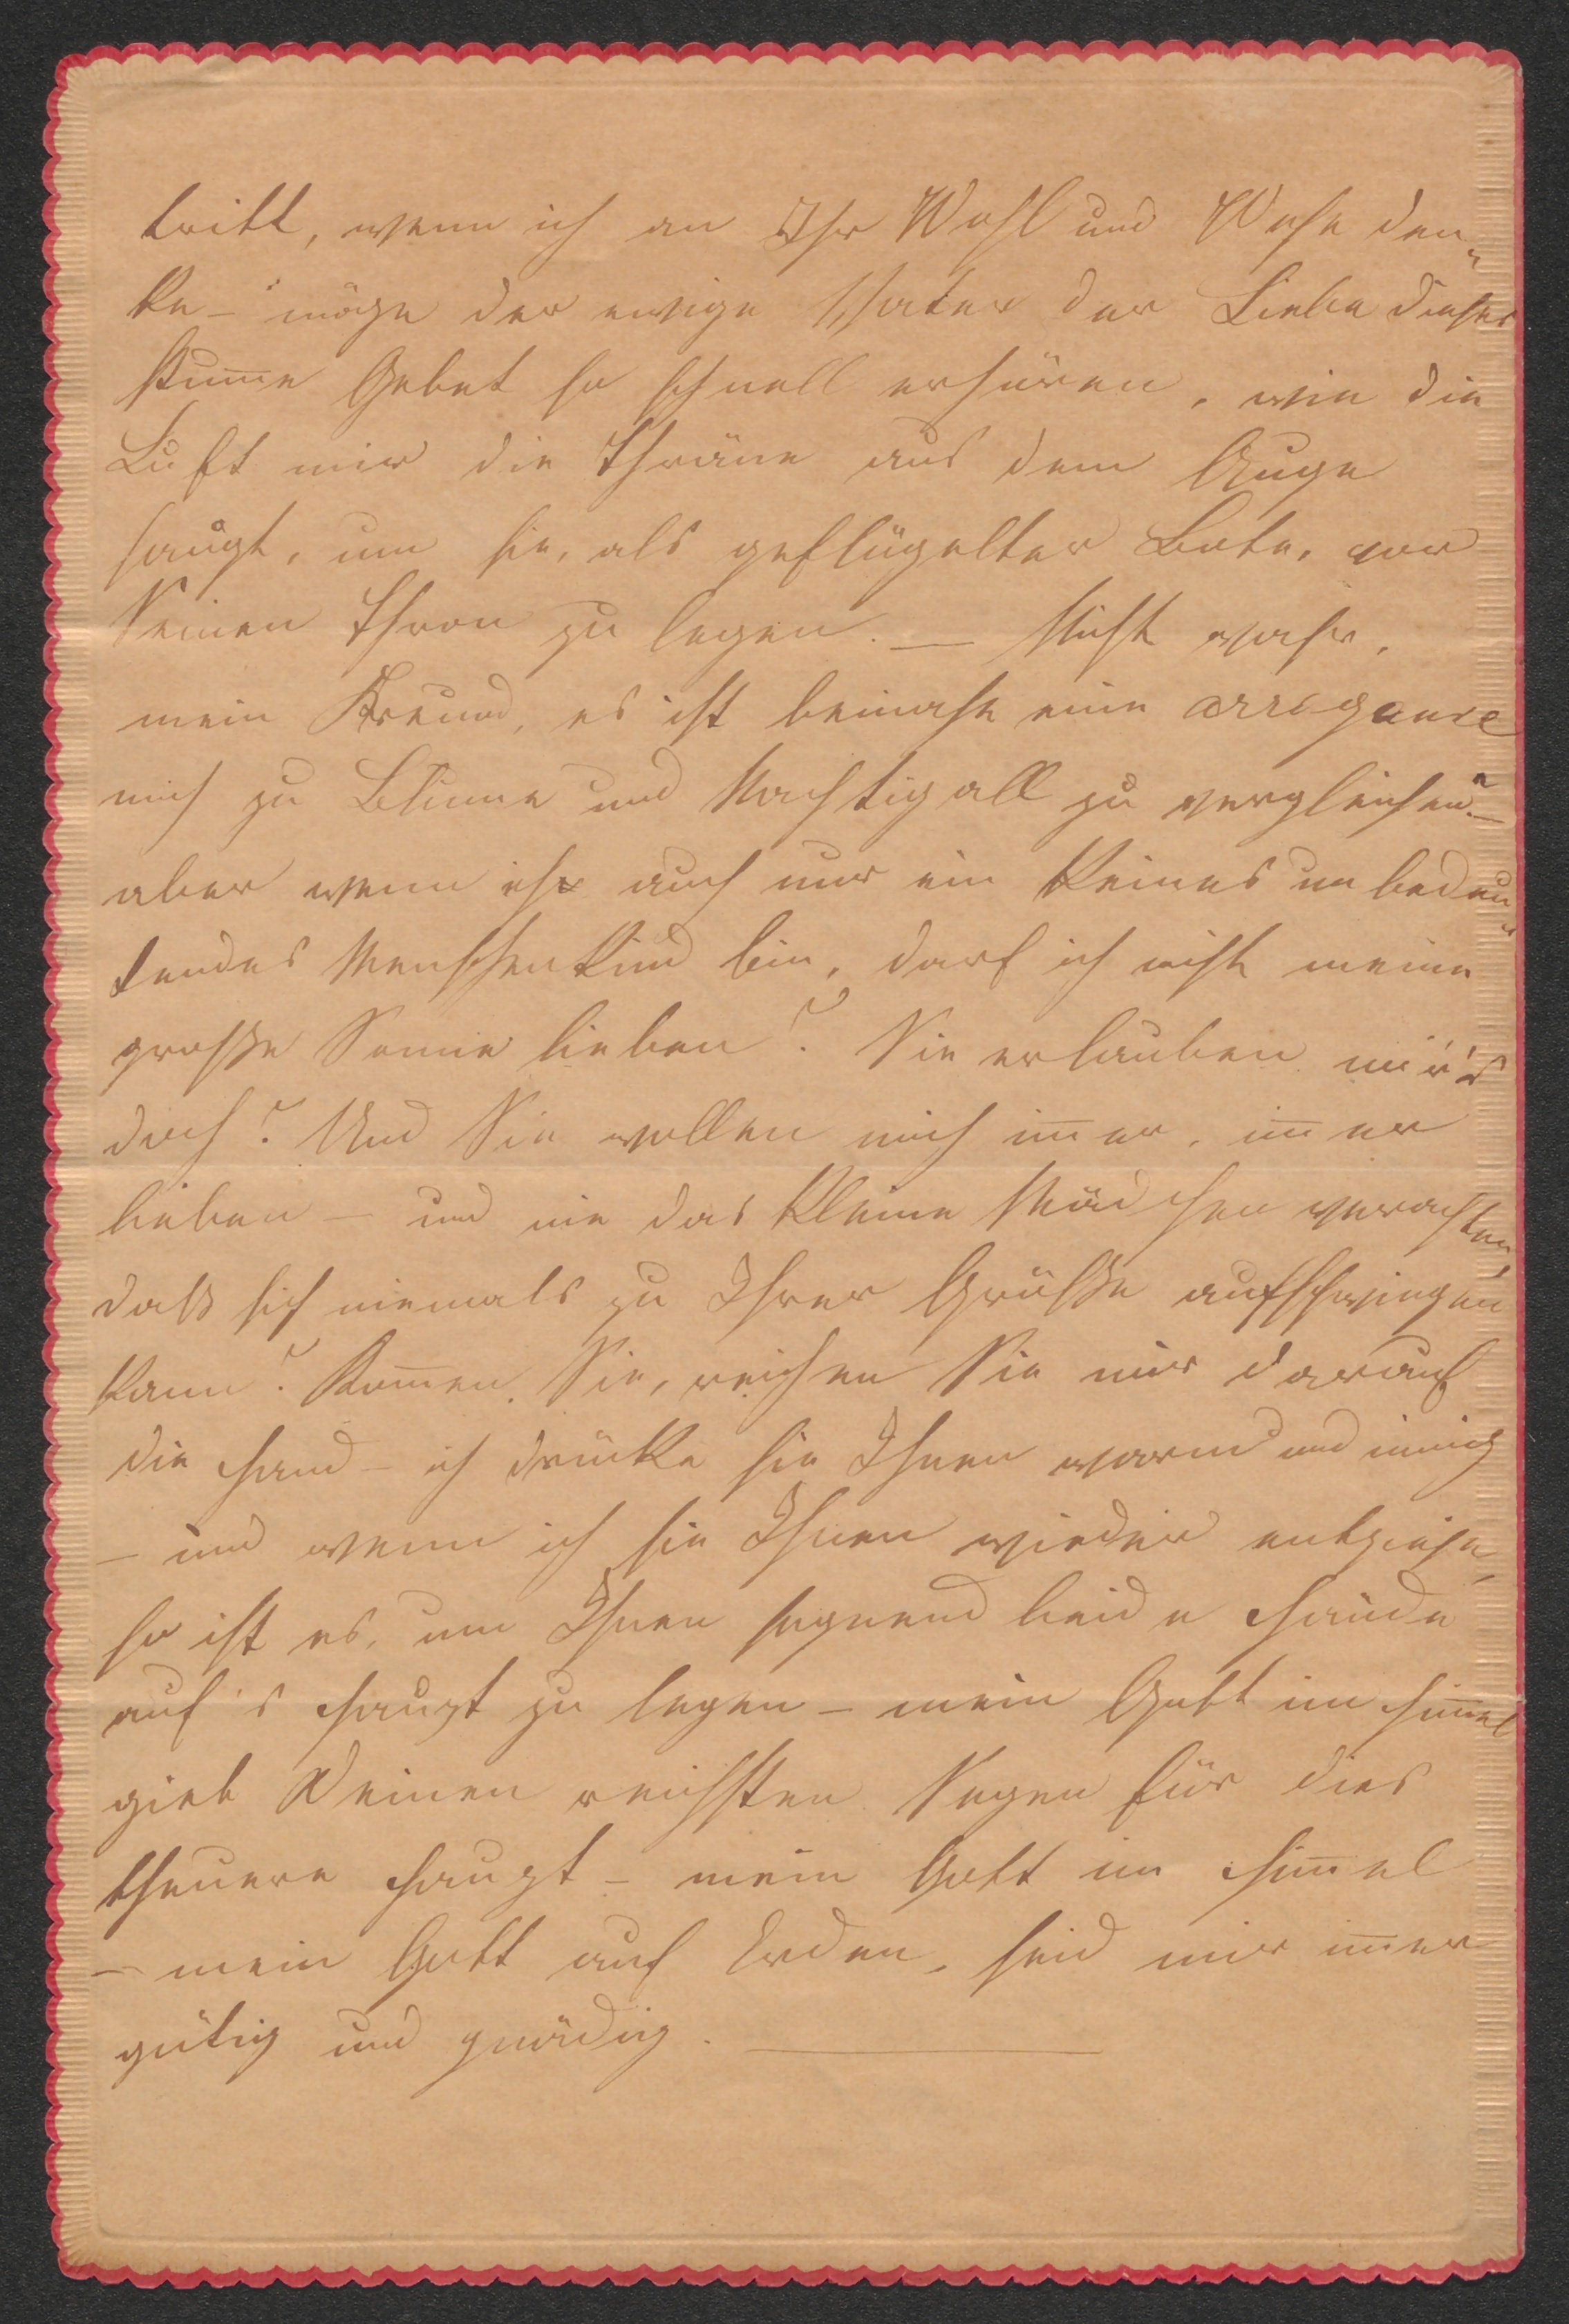 tritt, wenn ich an Ihr Wohl und Wehe den-
ke – möge der ewige Vater der Liebe dieses
stum̅e Gebet so schnell erhören, wie die
Luft mir die Thräne aus dem Auge
saugt, um sie, als geflügelter Bote, vor
Seinen Thron zu legen. — Nicht wahr,
mein Freund, es ist beinahe eine arrogance
mich zu Blume und Nachtigall zu vergleichen? –
aber wenn ich auch nur ein kleines unbedeu-
tendes Menschenkind bin, darf ich nicht meine
große Sonne lieben? Sie erlauben mir's
doch? Und Sie wollen mich im̅er, im̅er
lieben – und nie das kleine Mädchen verachten,
daß sich niemals zu Ihrer Größe aufschwingen
kann? Kom̅en Sie, reichen Sie mir darauf
die Hand – ich drücke sie Ihnen warm und innig
– und wenn ich sie Ihnen wieder entziehe,
so ist es, um Ihnen segnend beide Hände
auf's Haupt zu legen – mein Gott im Him̅el
gieb Deinen reichsten Segen für dies
theuere Haupt – mein Gott im Him̅el
– mein Gott auf Erden, seid mir im̅er
gütig und gnädig. —